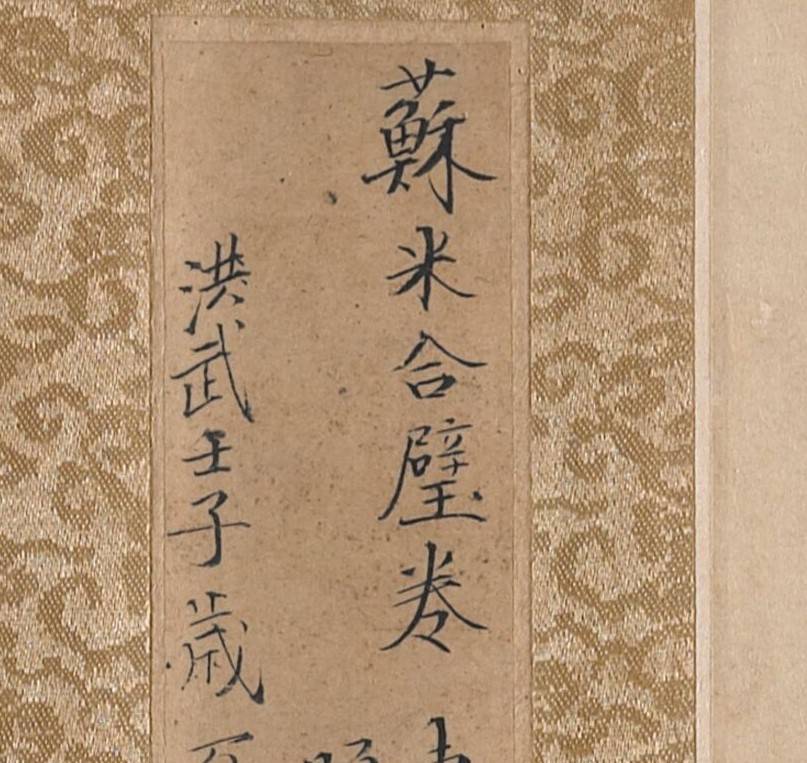 蘇米合璧卷
洪武壬子歲